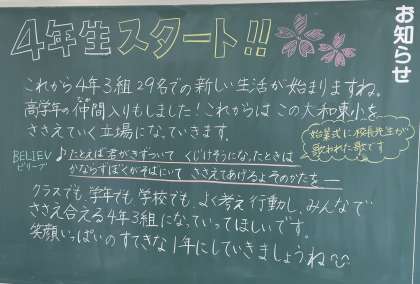 お知らせ
4年生スタート!!
これから4年3組29名での新しい生活が始まりますね。
高学年の仲間入りもしました!これからはこの大和東小を
ささえていく立場になっていきます。
始業式に校長先生が
歌われた歌です
BELIEV
ビリーブ
♪たとえば君がきずついて くじけそうになったときは
かならずぼくがそばにいて ささえてあげるよそのかたを
クラスでも、学年でも、学校でも、よく考え行動し、みんなで
ささえ合える4年3組になっていってほしいです。
笑顔いっぱいのすてきな1年にしていきましょうね